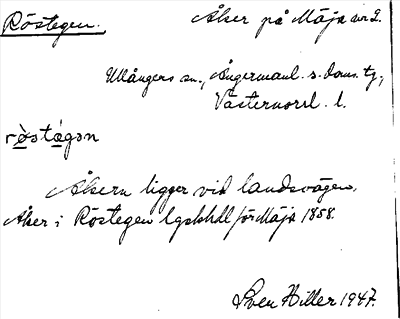 Röstegen.
Åker på Mäja nr 2.
Ullångers sn., Ångermanl. s. doms. tg,
Västernorrl. l.
rò̱stá̱gən
Åkern ligger vid landsvägen.
Åker i Röstegen lgskhdl för Mäja 1858.
Sven Hiller 1947.